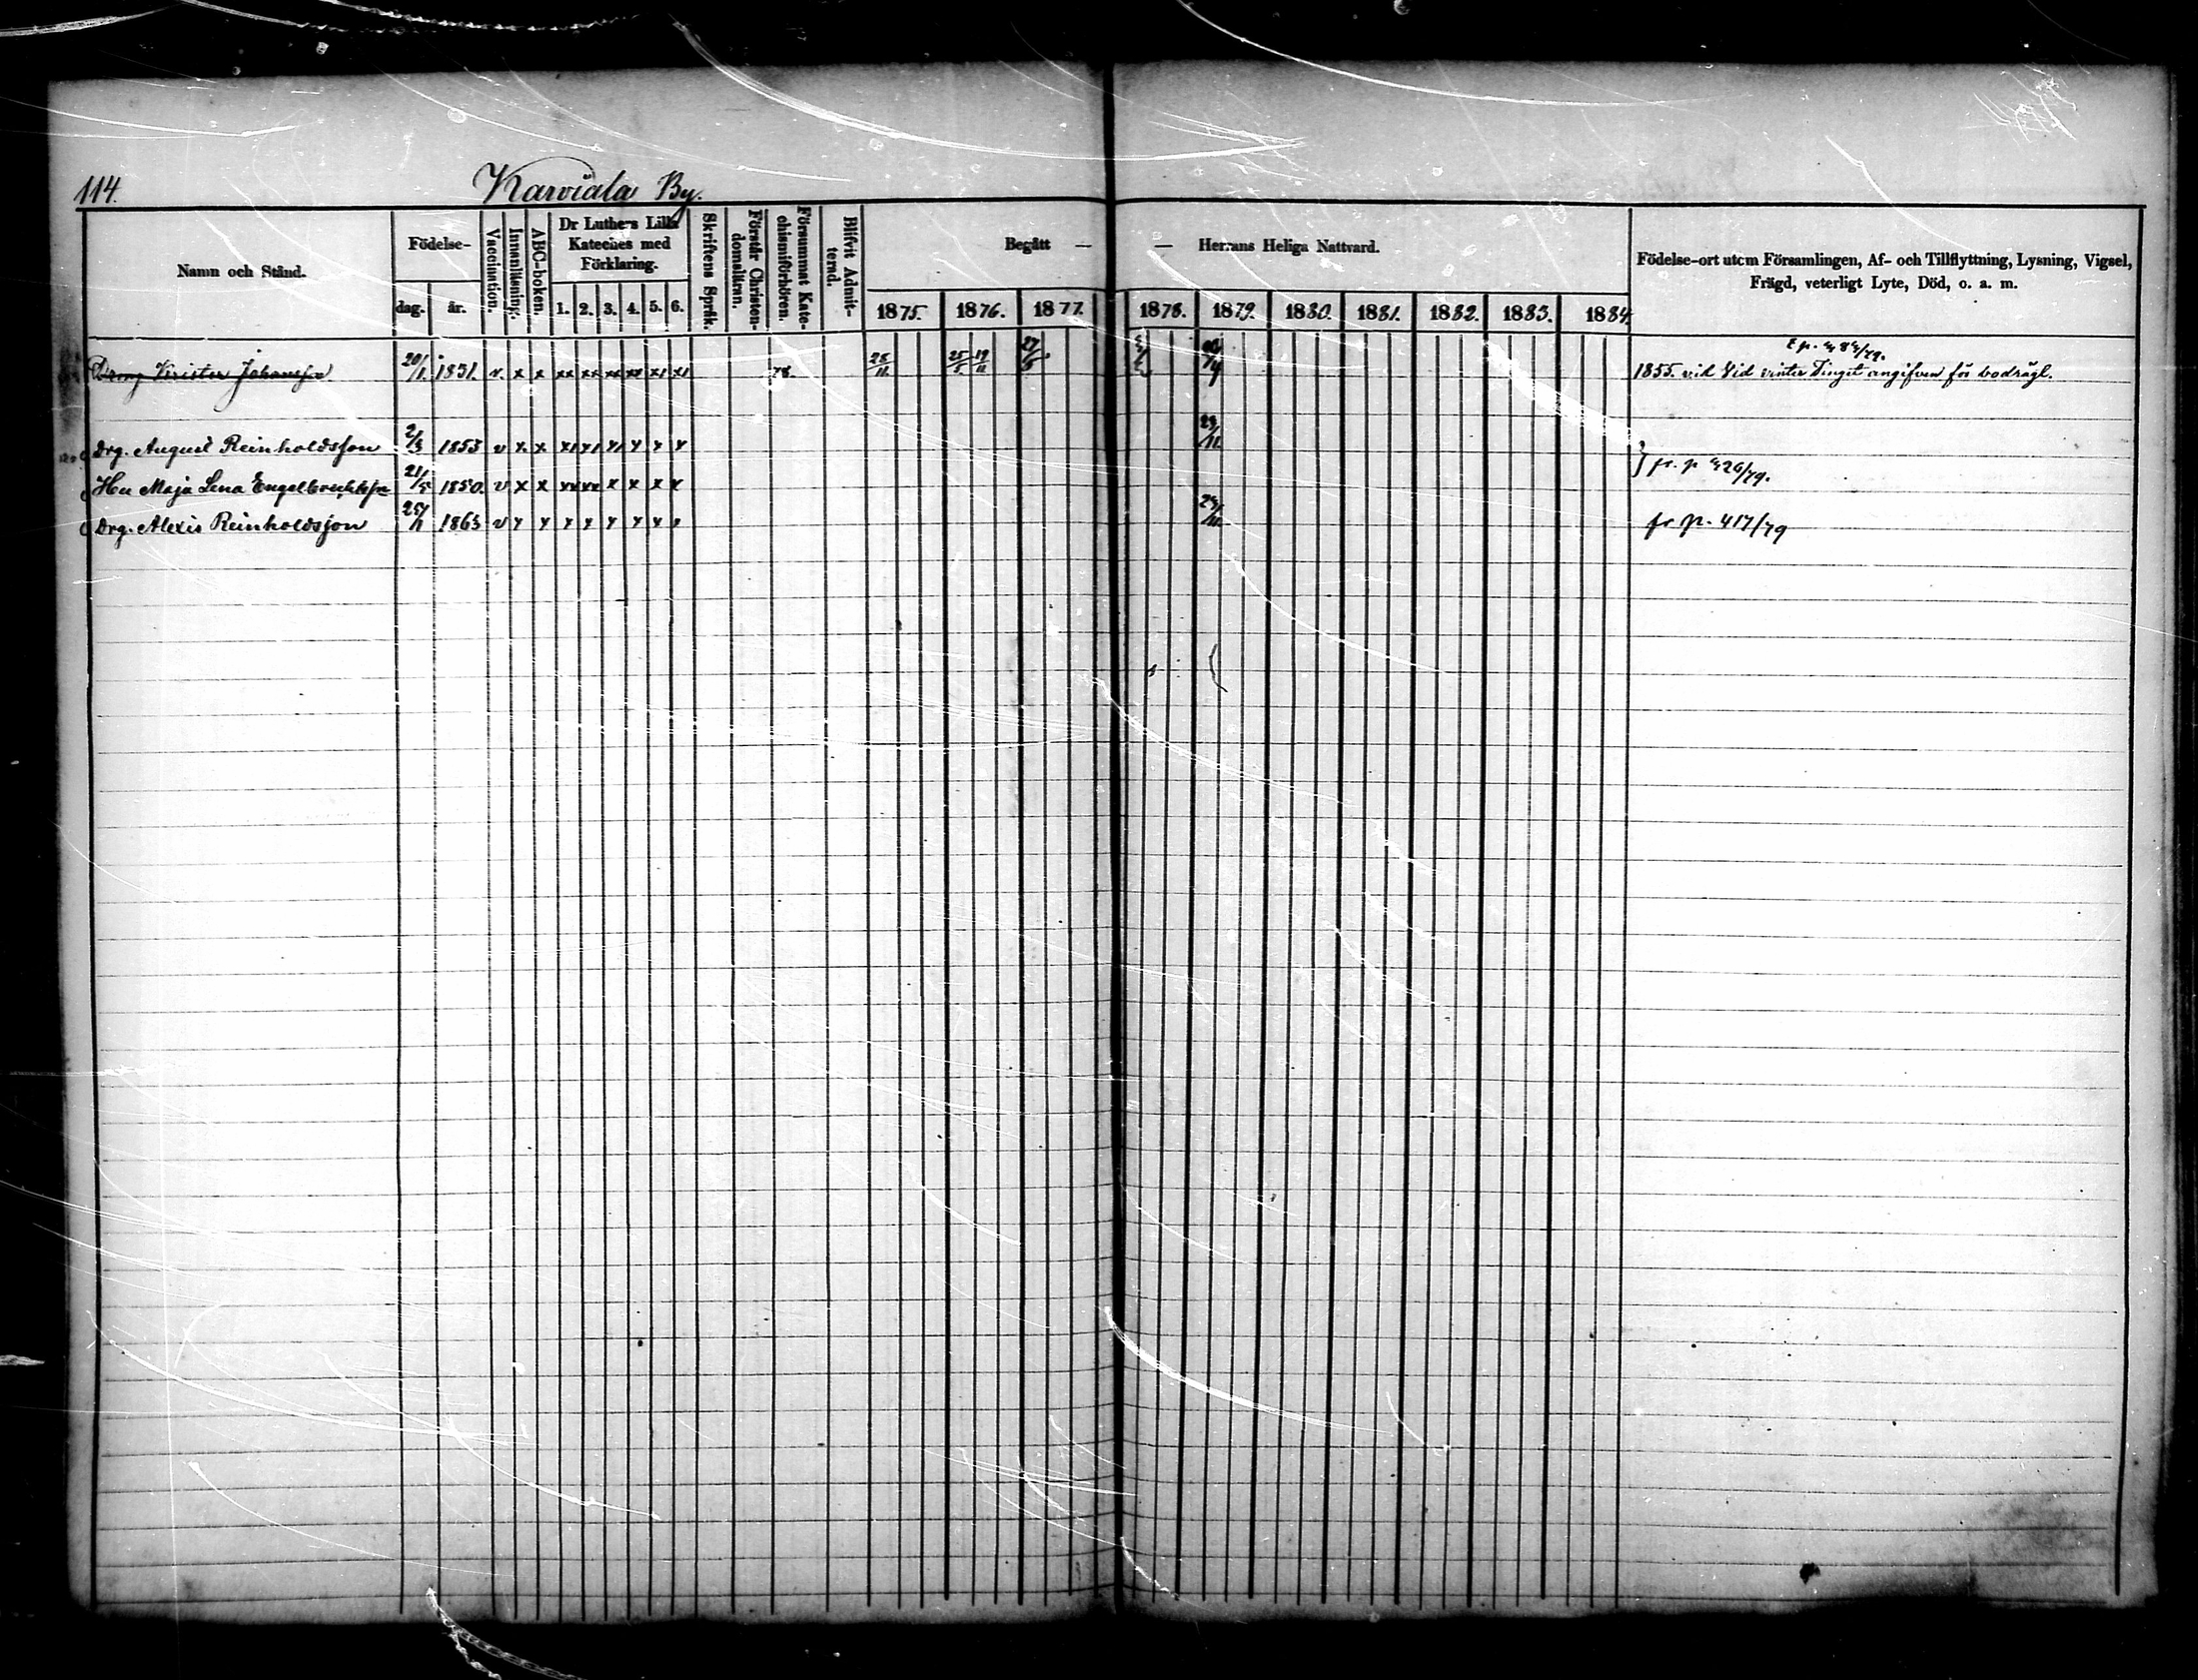 114. Karviala By.
Namn och Stånd.
Födelse-
dag.
år.
Vaccination.
Innanläsning.
ABC-boken.
Dr Luthers Lilla
Kateches med
Förklaring.
1. 2. 3. 4. 5. 6.
Skriftens Språk.
Förstår Christen-
domsläran.
Försummat Kate-
chismiförhören.
Blifvit Admit-
terad.
Begått — — Herrans Heliga Nattvard.
1875. 1876. 1877. 1878. 1879. 1880. 1881. 1882. 1883. 1884.
Födelse-ort utom Församlingen, Af- och Tillflyttning, Lysning, Vigsel,
Frägd, veterligt Lyte, Död, o. a. m.
Dreng Krister Johansson 20/1. 1831. v. x x xx xx xx xx x1 x1 78. 28/11. 25/5 19/11 27/5
1855. vid Tid vinter Tinget angifven för bedrägl.
Drg. August Reinholdsson 2/3 1853 v x. x. x1 x1 x1 x x x 23/11.
Hu Maja Lena Engelbrechtsdr 21/5 1850. v x x xx xx x x x x } fr. p 426/79.
Drg. Alexis Reinholdsson 25/1 1863 v x x x x x x x x 23/11. fr p. 417/79